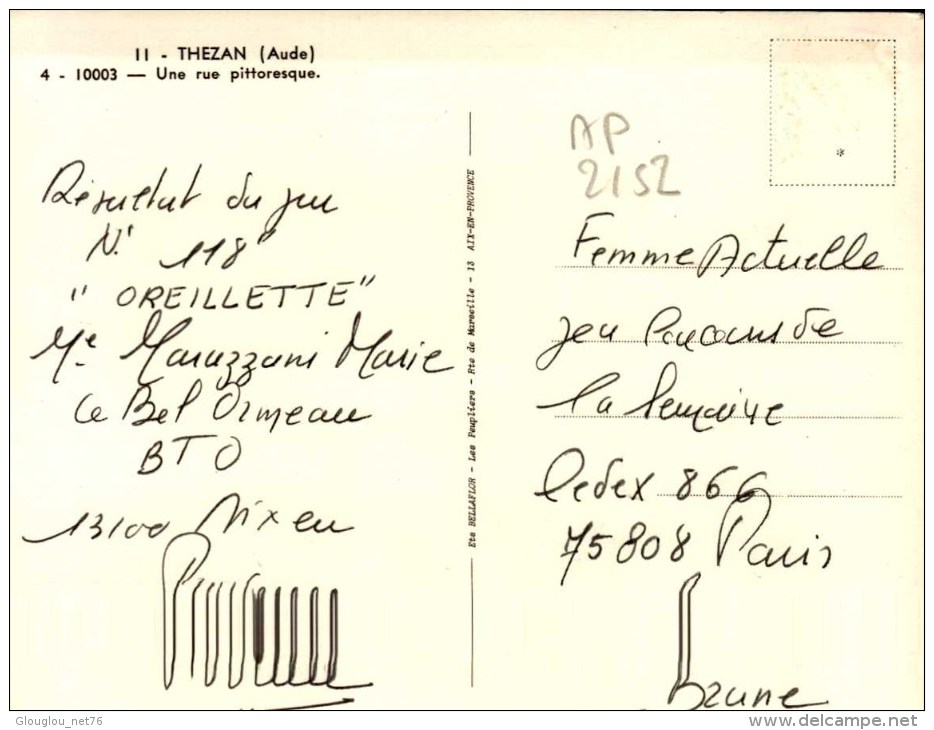 11 - THEZAN (Aude)
4 - 10003 — Une rue pittoresque.
Résultat du jeu
N° 118
" OREILLETTE "
Me Marazzani Marie
Le Bel Ormeau
BTO
13100 Aix en
Provence
Ets BELLAFLOR - Les Peupliers - Rte de Marseille - 13 AIX-EN-PROVENCE
AP
2152
*
Femme Actuelle
jeu Concours de
la semaine
Cedex 866
75808 Paris
Brune
Glouglou_net76
delcampe.net